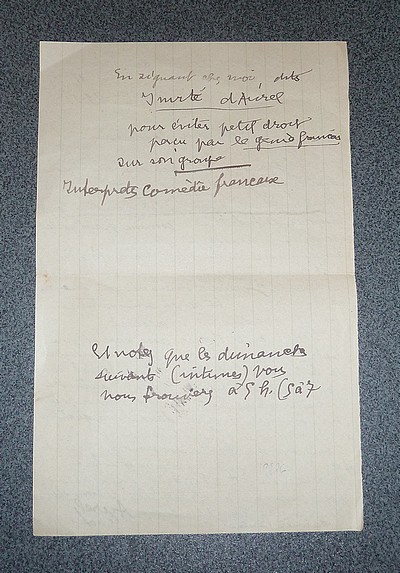 En signant chez moi dits
Invité d'Aurel
pour éviter petit droit
perçu par le grand français
sur son groupe
Interprets Comédie française
Et notez que les dimanches
suivants (intimes) vous
nous trouverez à 5 h. (5 à 7